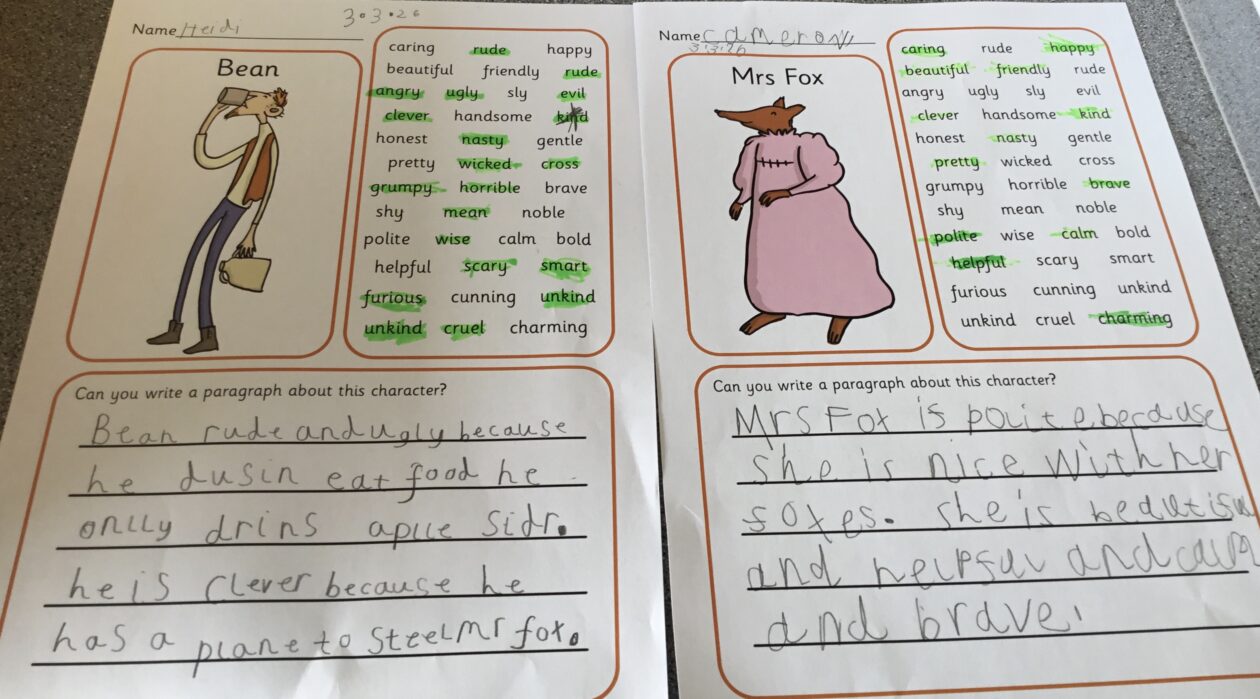 Name Heidi
3.3.26
Bean
caring rude happy
beautiful friendly rude
angry ugly sly evil
clever handsome kind
honest nasty gentle
pretty wicked cross
grumpy horrible brave
shy mean noble
polite wise calm bold
helpful scary smart
furious cunning unkind
unkind cruel charming
Can you write a paragraph about this character?
Bean rude and ugly because
he dusin eat food he
onlly drins aplle sidr.
he is clever because he
has a plane to steel mr fox.
Name cameron
3.3.26
Mrs Fox
caring rude happy
beautiful friendly rude
angry ugly sly evil
clever handsome kind
honest nasty gentle
pretty wicked cross
grumpy horrible brave
shy mean noble
polite wise calm bold
helpful scary smart
furious cunning unkind
unkind cruel charming
Can you write a paragraph about this character?
Mrs Fox is polite because
she is nice with her
foxes. she is
and helpful and
and brave.